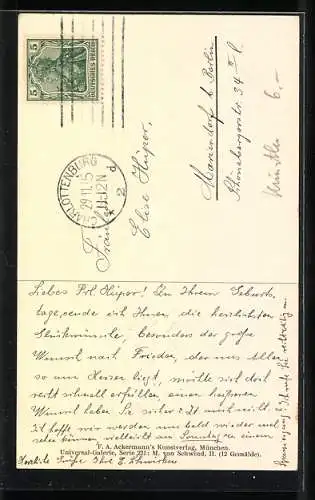 5 5
DEUTSCHES REICH
CHARLOTTENBURG
29.11.15
11-12N
d
* 2 *
Fräulein
Elise Hüper,
Mariendorf b. Berlin
34 II l.
Künstler 6.-
Liebes Frl. Hüper! Zu Ihrem Geburts
tage sende ich Ihnen die herzlichsten
Glückwünsche, besonders der große
Wunsch nach Frieden, der uns Allen
so am Herzen liegt, möchte sich doch
recht schnell erfüllen, einen heißeren
Wunsch haben Sie sicher z. Zt. auch nicht.
Ich hoffe wir werden uns bald wieder mal
sehen können vielleicht am Sonntag zu einem
F. A. Ackermann's Kunstverlag, München.
Universal-Galerie, Serie 221: M. von Schwind, II. (12 Gemälde).
Herzliche Grüße Ihre E.